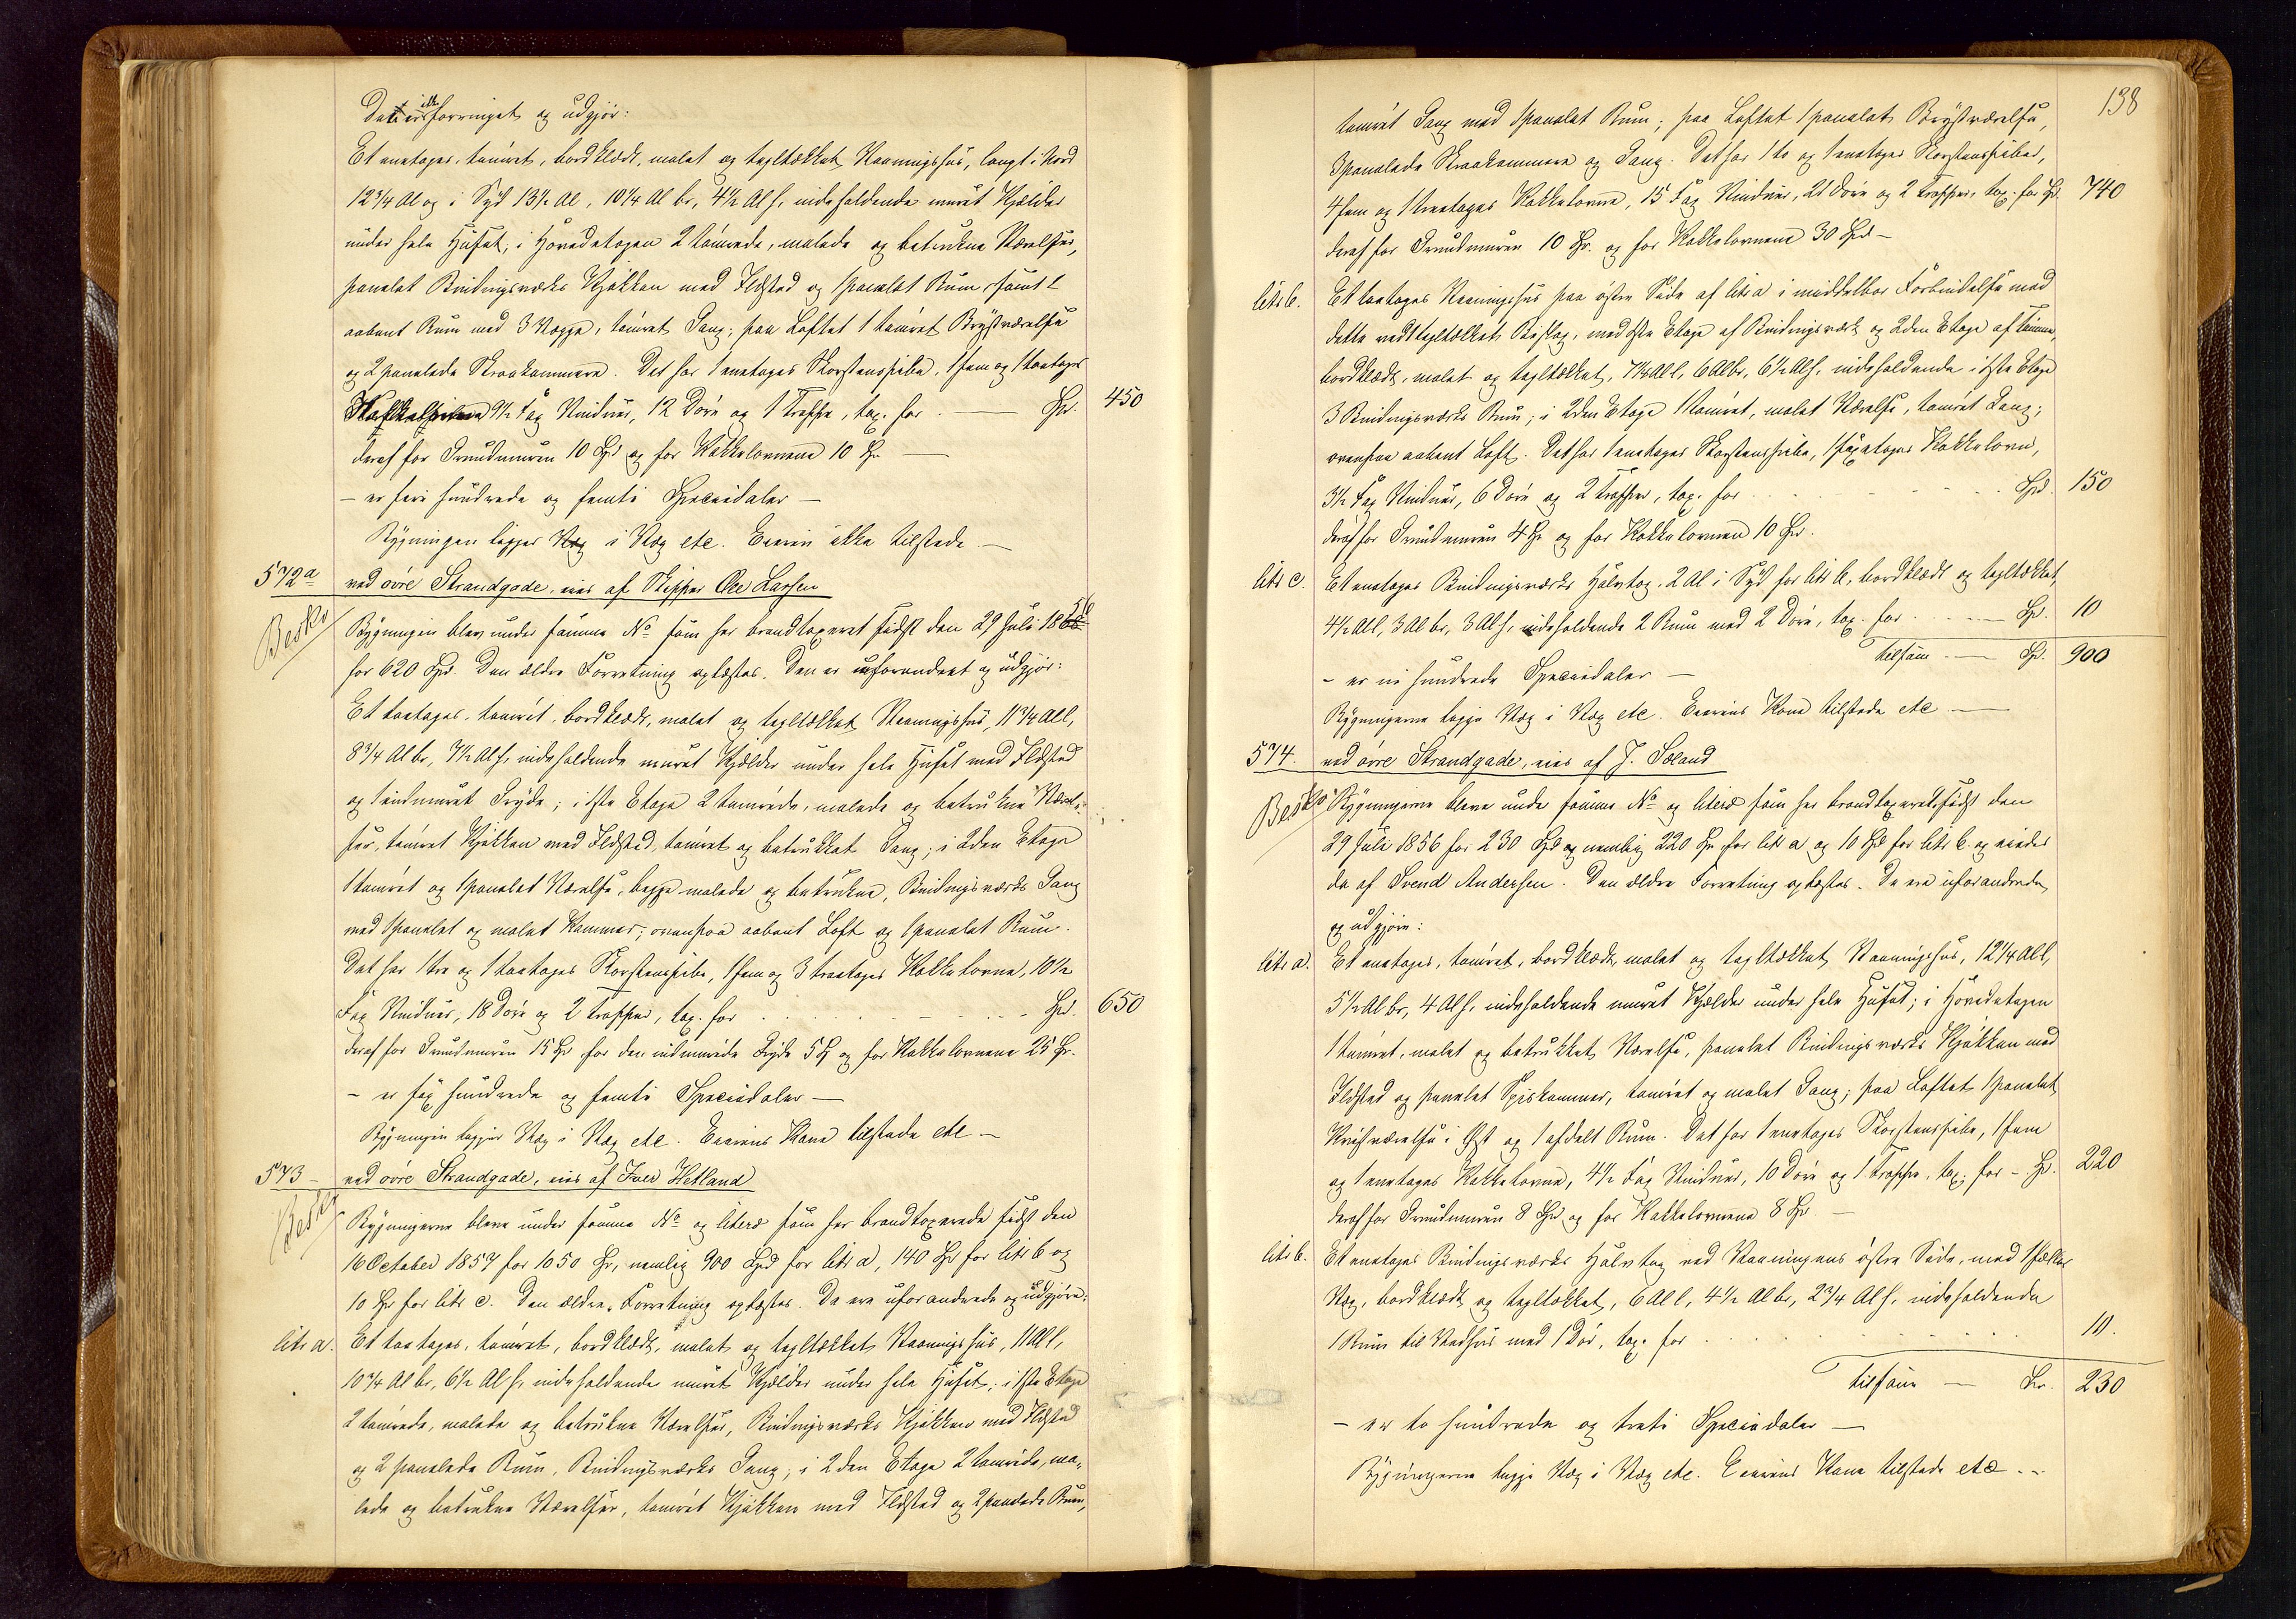 Det er ikke forringet og udgjør:
Et enetages, tømret, bordklædt, malet og tegltækket Vaaningshus, langt i Nord
12 3/4 Al og i Syd 13 1/2 Al, 10 1/4 Al br, 4 1/2 Al h, indeholdende muret Kjælder
under hele Huset; i Hovedetagen 2 tømrede, malede og betrukne Værelser,
panelet Bindingsværks Kjøkken med Ildsted og 1 panelet Rum, samt 1
aabent Rum med 3 Vægge, tømret Gang; paa Loftet 1 tømret Brystværelse
og 2 panelede Skraakammere. Det har 1 enetages Skorstenspibe, 1 fem og 1 toetages
9 1/2 Fag Vinduer, 12 Døre og 1 Trappe, tax. for . — Spd. 450
deraf for Grundmuren 10 Spd og for Kakkelovnene 10 Sp. —
– er fire hundrede og femti Speciedaler –
Bygningen ligger Væg i Væg etc. Eieren ikke tilstede. —
572a ved øvre Strandgade, eies af Skipper Ole Larsen
Besko Bygningen blev under samme No som her brandtaxeret sidst den 29 Juli 1856
for 620 Spd. Den ældre Forretning oplæstes. Den er uforandret og udgjør:
Et toetages, tømret, bordklædt, malet og tegltækket Vaaningshus, 11 3/4 Al l,
8 3/4 Al br, 7 1/2 Al h, indeholdende muret Kjælder under hele Huset med Ildsted
og 1 indmuret Gryde; i 1ste Etage 2 tømrede, malede og betrukne Værel-
ser, tømret Kjøkken med Ildsted, tømret og betrukket Gang; i 2den Etage
1 tømret og 1 panelet Værelse, begge malede og betrukne, Bindingsværks Gang
med 1 panelet og malet Kammer; ovenpaa aabent Loft og 1 panelet Rum.
Det har 1 tre og 1 toetages Skorstenspibe, 1 fem og 3 treetages Kakkelovne, 10 1/2
Fag Vinduer, 18 Døre og 2 Trapper, tax. for . . . Spd. 650
deraf for Grundmuren 15 Sp for den indmurede Gryde 5 Sp og for Kakkelovnene 25 Sp.
– er sex hundrede og femti Speciedaler —
Bygningen ligger Væg i Væg etc. Eierens Kone tilstede etc –
573 – ved øvre Strandgade, eies af Iver Hetland
Besko Bygningerne bleve under samme No og litera som her brandtaxerede sidst den
16 October 1857 for 1050 Sp, nemlig 900 Spd for litr a, 140 Sp for litr b og
10 Sp for litr c. Den ældre Forretning oplæstes. De ere uforandrede og udgjøre:
litr a. Et toetages, tømret, bordklædt, malet og tegltækket Vaaningshus, 11 Al l,
10 3/4 Al br, 6 1/2 Al h, indeholdende muret Kjælder under hele Huset; i 1ste Etage
2 tømrede, malede og betrukne Værelser, Bindingsværks Kjøkken med Ildsted
og 2 panelede Rum, Bindingsværks Gang; i 2den Etage 2 tømrede, ma-
lede og betrukne Værelser, tømret Kjøkken med Ildsted og 2 panelede Rum,
138
tømret Gang med 1 panelet Rum; paa Loftet 1 panelet Brystværelse,
3 panelede Skraakammere og Gang. Det har 1 to og 1 enetages Skorstenspiber,
4 fem og 1 treetages Kakkelovne, 15 Fag Vinduer, 21 Døre og 2 Trapper, tax. for Sp. 740
deraf for Grundmuren 10 Sp. og for Kakkelovnene 30 Spd –
litr b. Et toetages Vaaningshus paa østre Side af litr a i middelbar Forbindelse med
dette ved 1 tegltækket Bislag, med 1ste Etage af Bindingsværk og 2den Etage af Tømmer,
bordklædt, malet og tegltækket, 7 1/4 Al l, 6 Al br, 6 1/2 Al h, indeholdende i 1ste Etage
3 Bindingsværks Rum; i 2den Etage 1 tømret, malet Værelse, tømret Gang;
ovenpaa aabent Loft. Det har 1 enetages Skorstenspibe, 1 sexetages Kakkelovn,
3 1/2 Fag Vinduer, 6 Døre og 2 Trapper, tax. for . . . Spd. 150
deraf for Grundmuren 4 Sp og for Kakkelovnen 10 Sp.
litr c. Et enetages Bindingsværks Halvtag, 2 Al i Syd for litr b, bordklædt og tegltækket,
4 1/2 Al l, 3 Al br, 3 Al h, indeholdende 2 Rum med 2 Døre, tax. for . . — Sp. 10
tilsam — Sp. 900
– er ni hundrede Speciedaler –
Bygningerne ligge Væg i Væg etc. Eierens Kone tilstede etc —
574. ved øvre Strandgade, eies af J. Søland
Besko Bygningerne bleve under samme No og litera som her brandtaxerede sidst den
29 Juli 1856 for 230 Spd og nemlig 220 Sp for litr a og 10 Spd for litr b. og eiedes
da af Svend Andersen. Den ældre Forretning oplæstes. De ere uforandrede
og udgjøre:
litr a. Et enetages, tømret, bordklædt, malet og tegltækket Vaaningshus, 12 1/4 Al l,
5 1/2 Al br, 4 Al h, indeholdende muret Kjælder under hele Huset; i Hovedetagen
1 tømret, malet og betrukket Værelse, panelet Bindingsværks Kjøkken med
Ildsted og panelet Spiskammer, tømret og malet Gang; paa Loftet 1 panelet
Kvistværelse i Øst og 1 afdelt Rum. Det har 1 enetages Skorstenspibe, 1 fem
og 1 enetages Kakkelovne, 4 1/2 Fag Vinduer, 10 Døre og 1 Trappe, tax. for – Sp. 220
deraf for Grundmuren 8 Spd og for Kakkelovnene 8 Sp. —
litr b. Et enetages Bindingsværks Halvtag ved Vaaningens østre Side, med 1 fælles
Væg, bordklædt og tegltækket, 6 Al l, 4 1/2 Al br, 2 3/4 Al h, indeholdende
1 Rum til Vedhus med 1 Dør, tax. for . . . 10.
tilsam — Sp. 230
– er to hundrede og treti Speciedaler —
Bygningerne ligge Væg i Væg etc. Eierens Kone tilstede etc. –